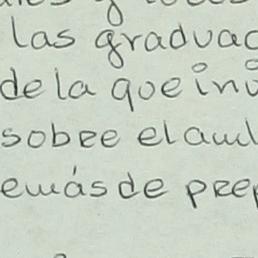 las graduac
de la que inv
sobre el
emás de prep